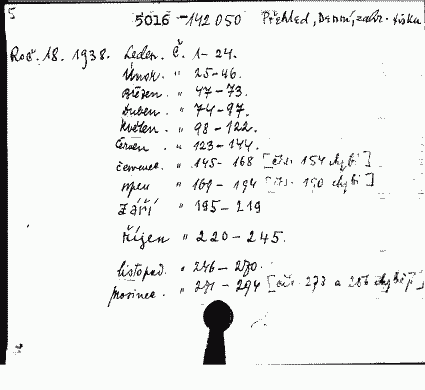 5016 - 142 050 Přehled, Denní, zahr. tisku
Roč. 18. 1938. Leden. Č. 1 - 24.
Únor. " 25 - 46.
Březen. " 47 - 73.
Duben. " 74 - 97.
Květen. " 98 - 122.
Červen. " 123 - 144.
červenec. " 145 - 168 [čís. 154 chybí]
srpen " 169 - 194 [čís. 190 chybí]
Září " 195 - 219
Říjen " 220 - 245.
listopad. " 246 - 270.
prosinec. " 271 - 294 [čís. 278 a 286 chybějí]